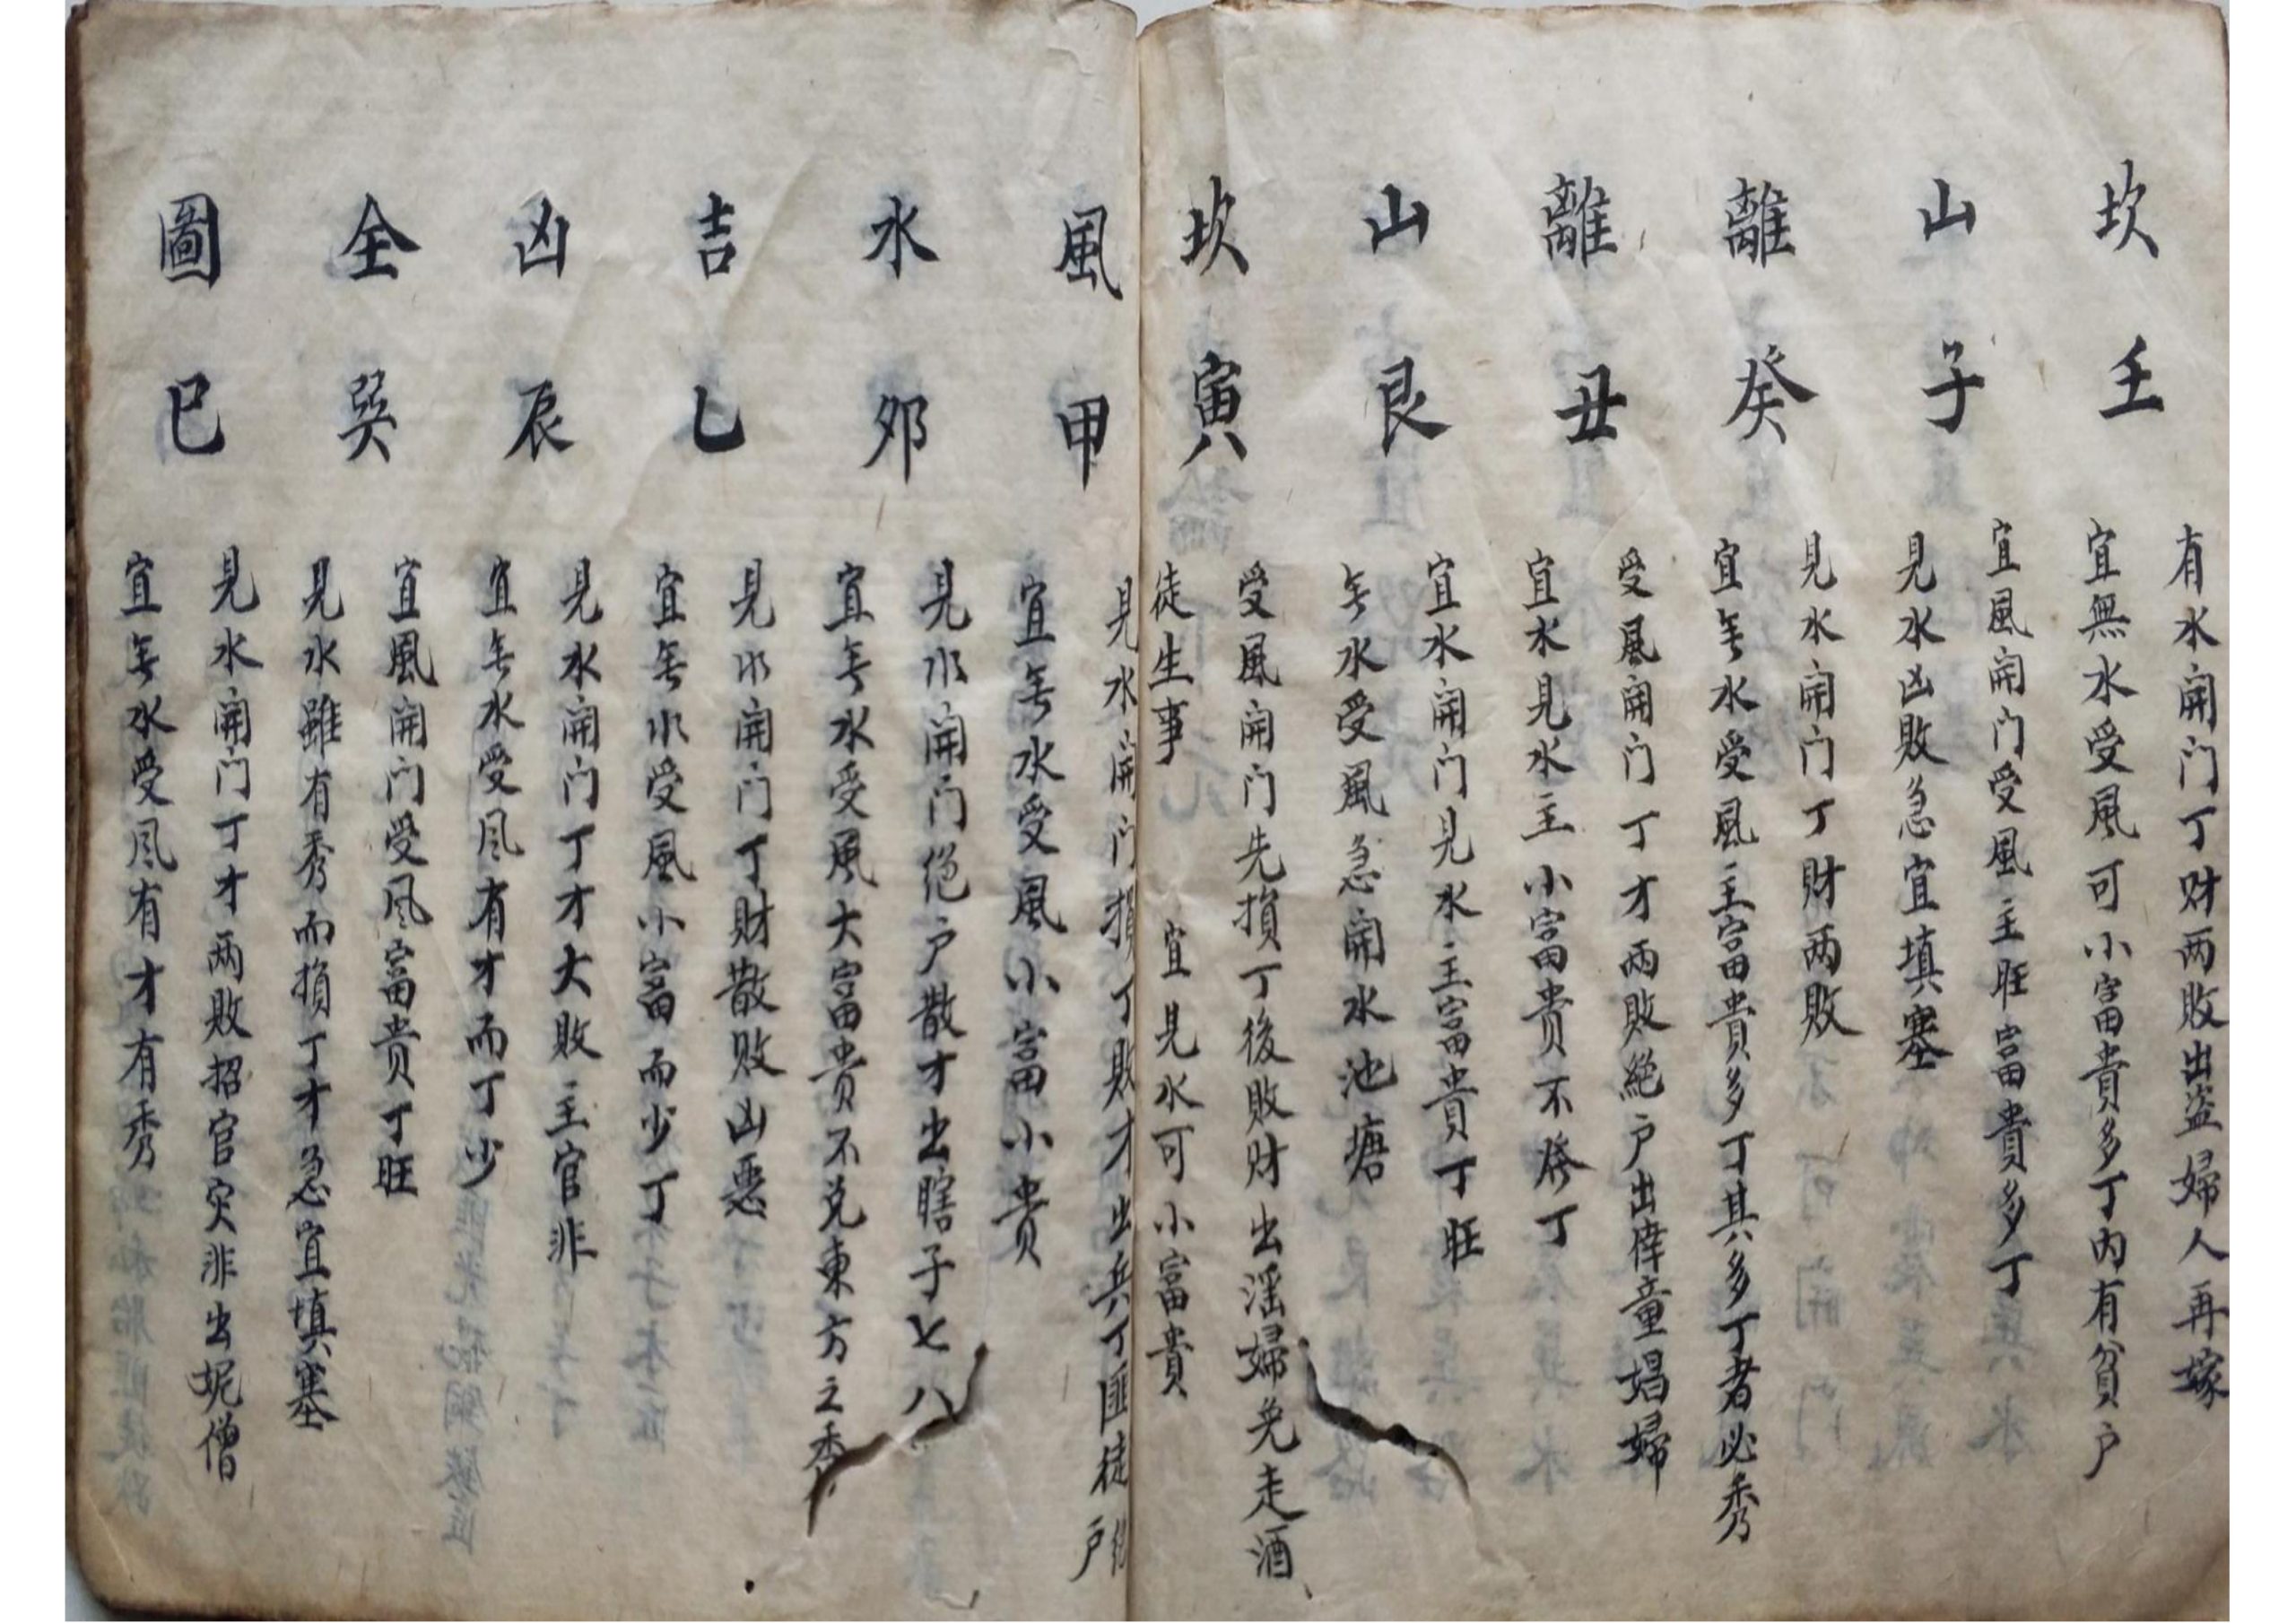 坎山離離山坎
壬子癸丑艮寅
有水開门丁财两敗出盗婦人再嫁
宜無水受風可小富貴多丁内有貧户
宜風開门受風主旺富貴多丁
見水凶敗急宜填塞
見水開门丁財两敗
宜旡水受風主富貴多丁其多丁者必秀
受風開门丁才两敗絕户出俥童娼婦
宜水見水主小富贵不發丁
宜水開门見水主富貴丁旺
旡水受風急開水池塘
受風開门先損丁後敗财出滛婦免走酒
徒生事 宜見水可小富貴
風水吉凶全圖
甲夘乙辰巽巳
見水開门損丁敗才出兵丁匪徒户
宜旡水受風小富小貴
見水開门绝户散才出瞎子七八
宜旡水受風大富贵不兑東方之秀
見水開门丁財散敗凶惡
宜旡水受風小富而少丁
見水開门丁才大敗主官非
宜旡水受凨有才而丁少
宜風開门受凨富贵丁旺
見水雖有秀而損丁才急宜填塞
見水開门丁才两敗招官灾非出妮僧
宜旡水受凨有才有秀